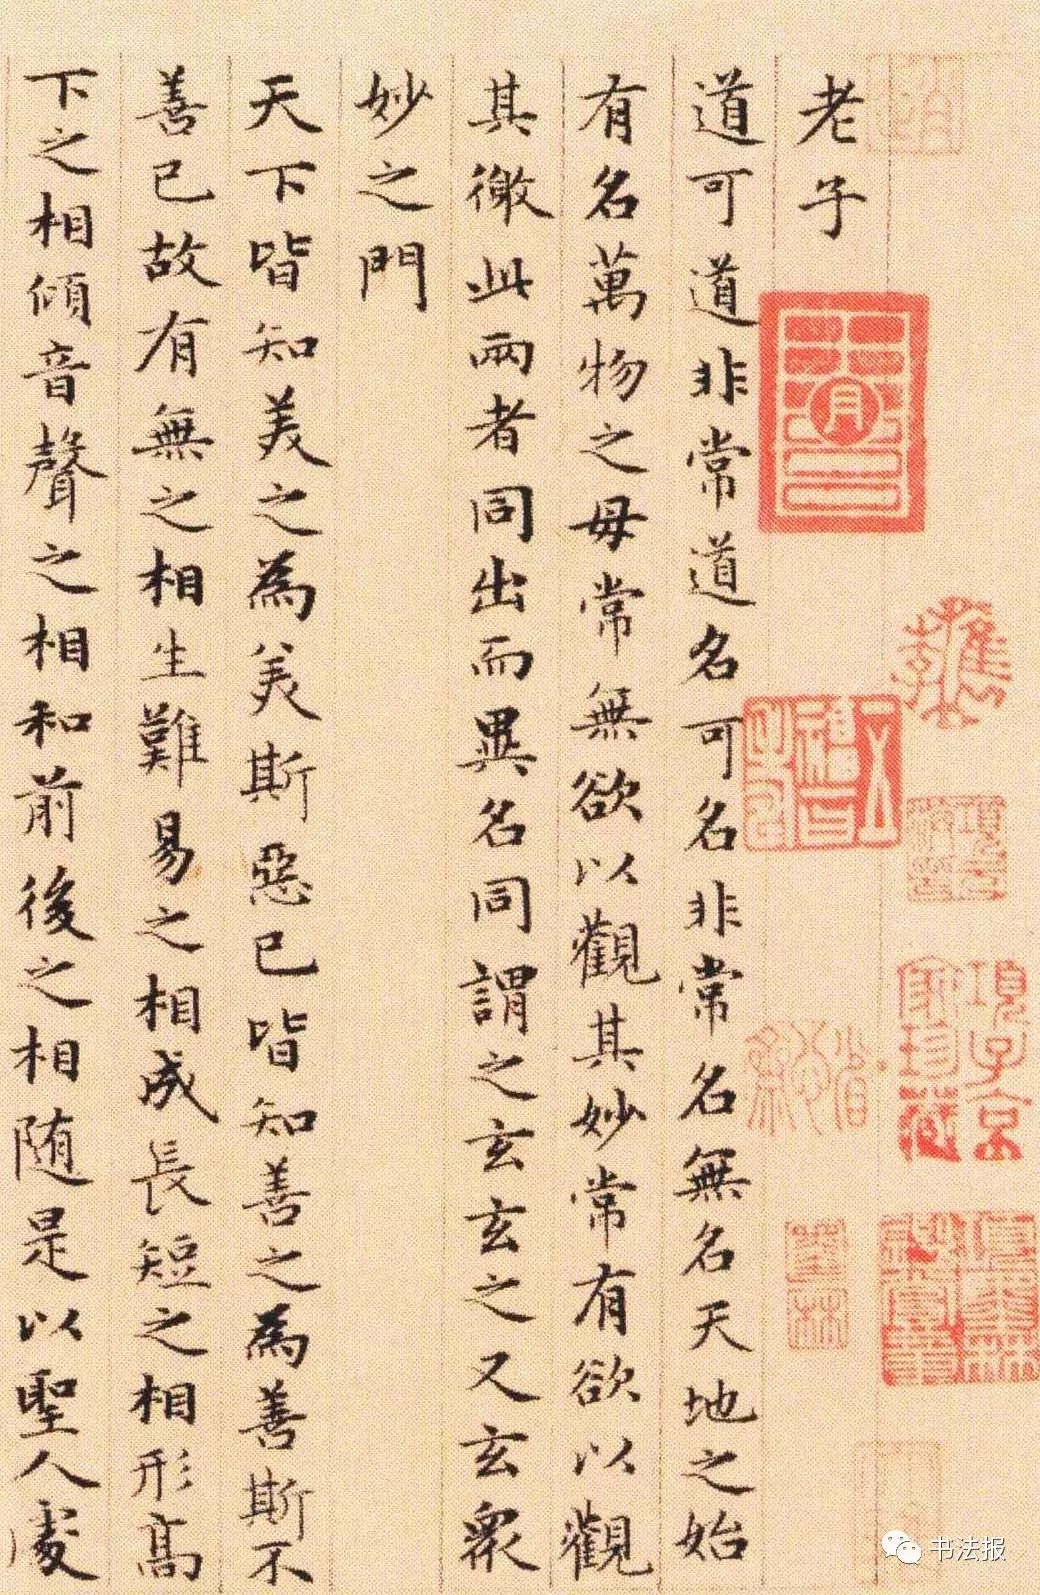 項子京家珍藏
墨林
老子
道可道非常道名可名非常名無名天地之始
有名萬物之母常無欲以觀其妙常有欲以觀
其徼此兩者同出而異名同謂之玄玄之又玄衆
妙之門
天下皆知美之為美斯惡已皆知善之為善斯不
善已故有無之相生難易之相成長短之相形高
下之相傾音聲之相和前後之相随是以聖人處
书法报